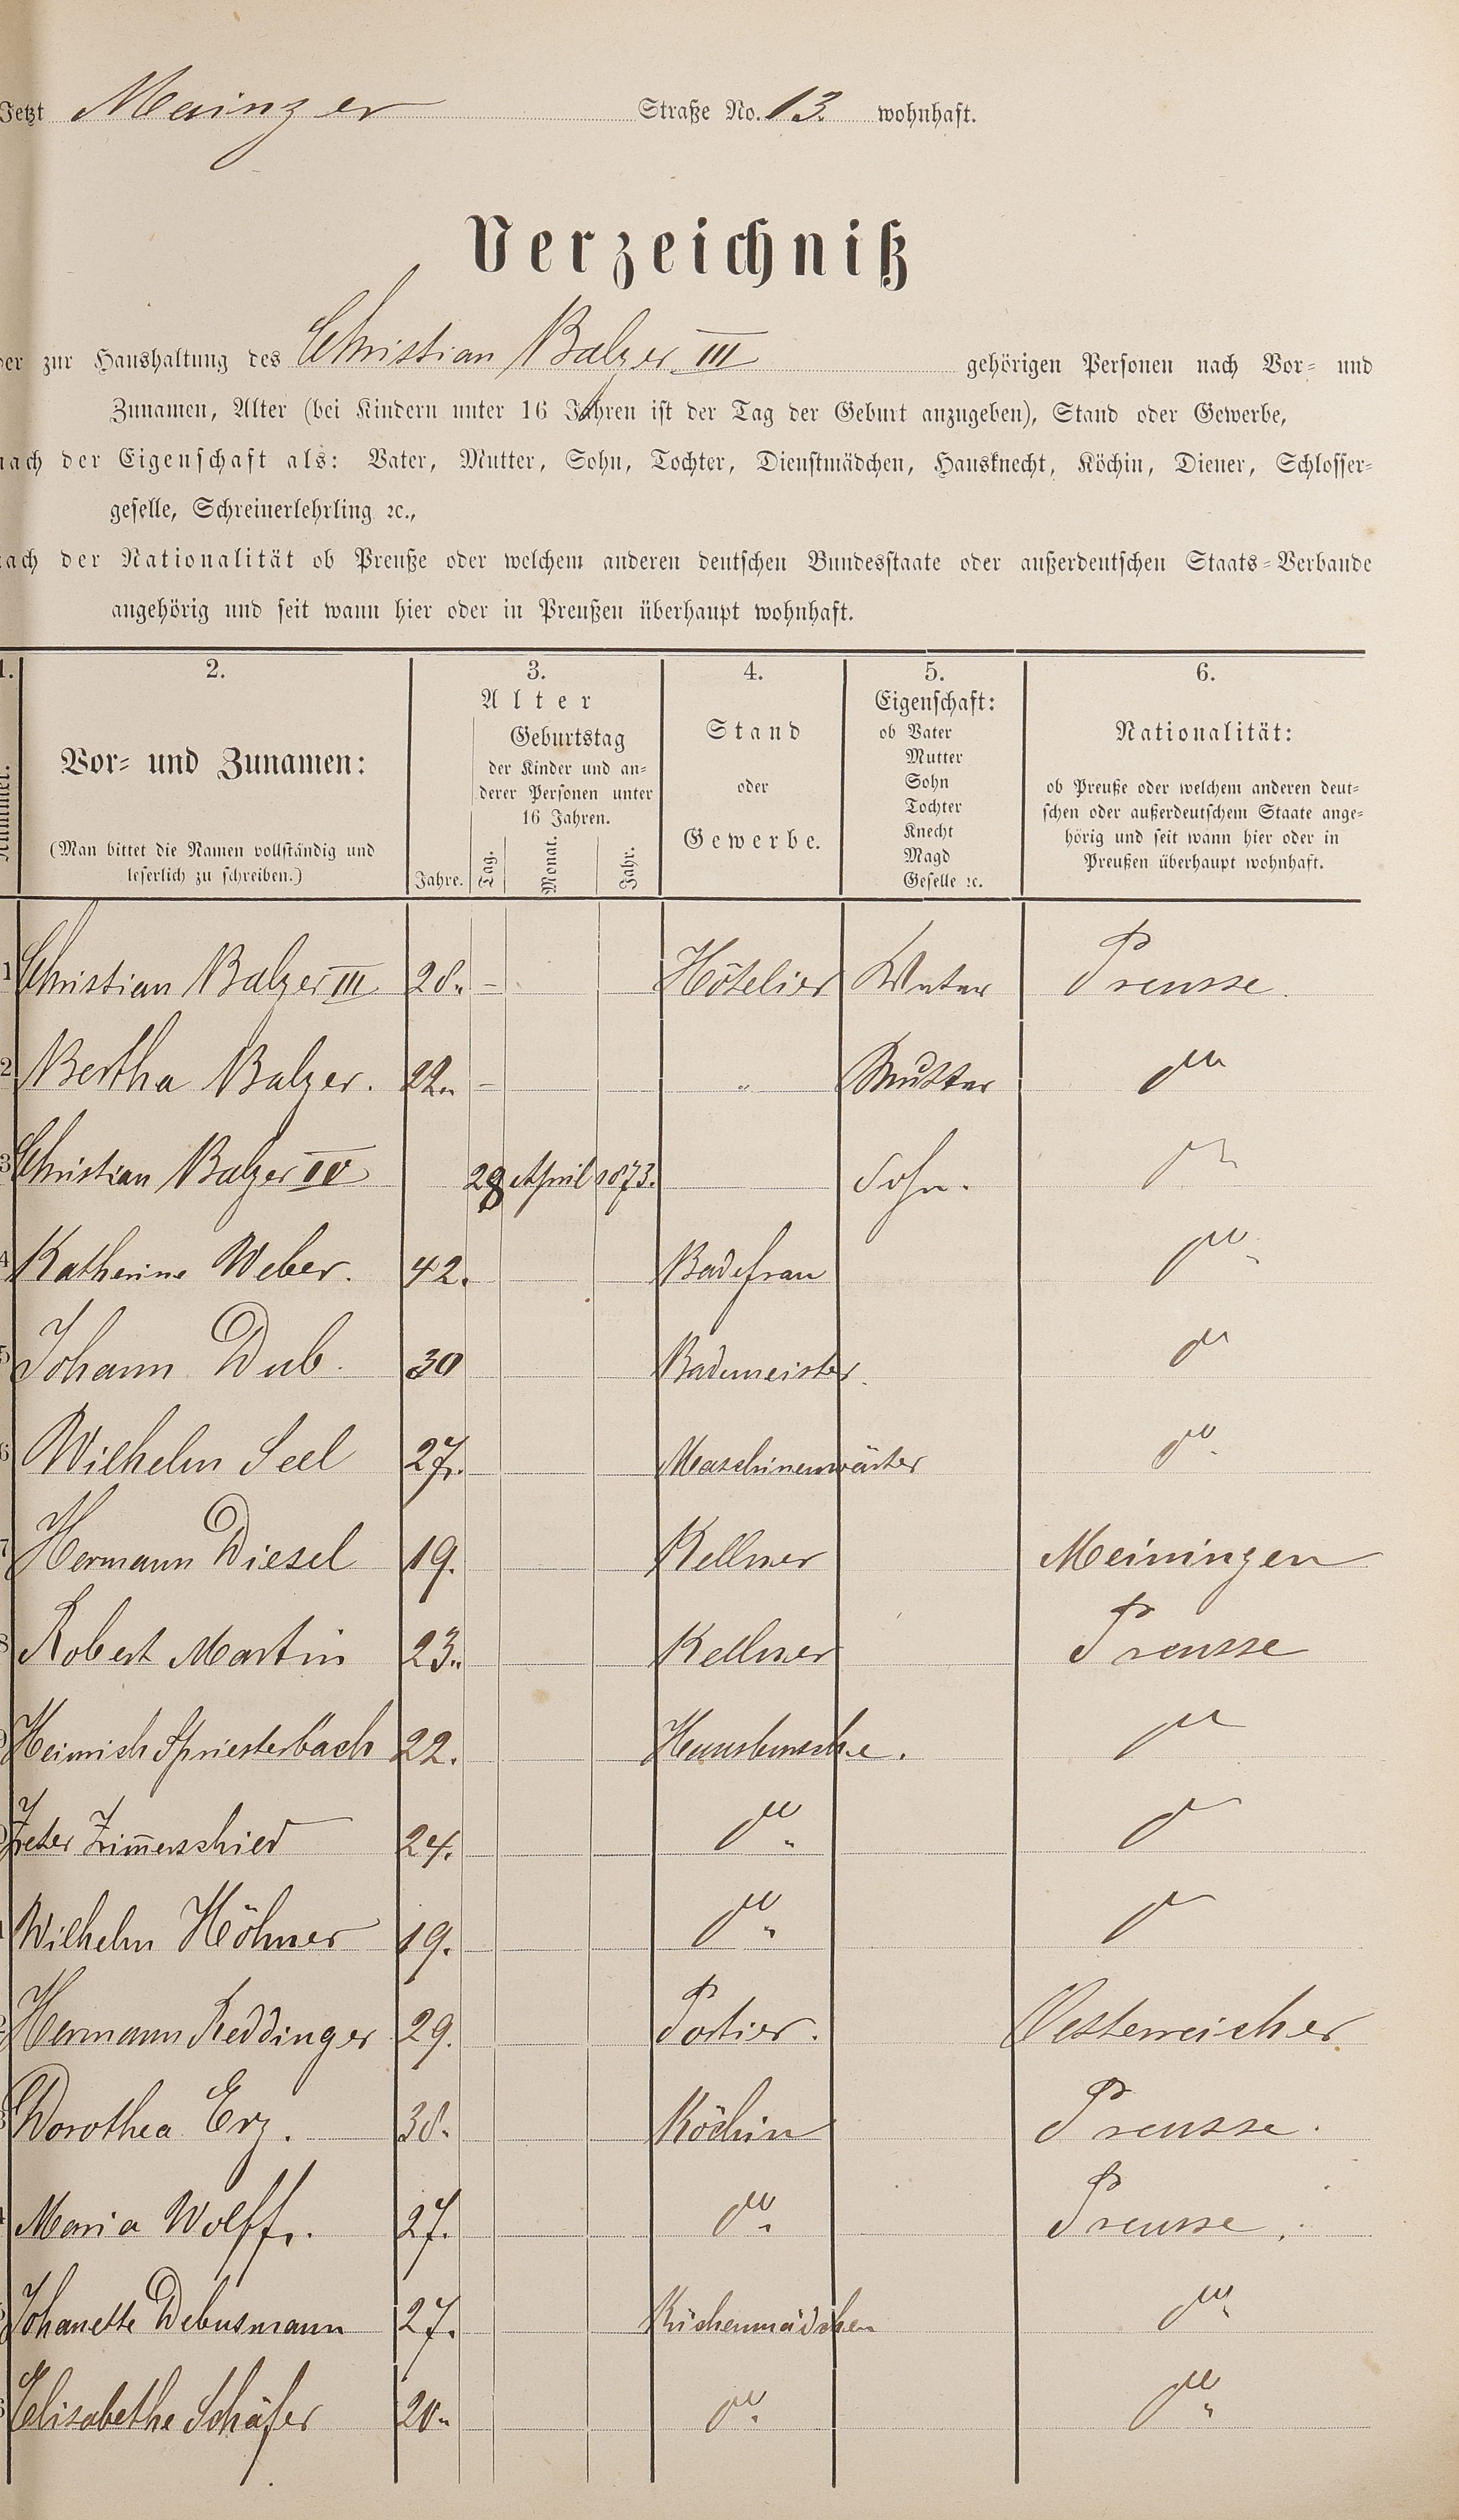 Jetzt Mainzer Straße No. 13. wohnhaft.
Verzeichniß
der zur Haushaltung des Christian Balzer III gehörigen Personen nach Vor- und
Zunamen, Alter (bei Kindern unter 16 Jahren ist der Tag der Geburt anzugeben), Stand oder Gewerbe,
nach der Eigenschaft als: Vater, Mutter, Sohn, Tochter, Dienstmädchen, Hausknecht, Köchin, Diener, Schlosser-
geselle, Schreinerlehrling ꝛc.,
nach der Nationalität ob Preuße oder welchem anderen deutschen Bundesstaate oder außerdeutschen Staats-Verbande
angehörig und seit wann hier oder in Preußen überhaupt wohnhaft.
1. 2. 3. 4. 5. 6.
Nummer.
Vor- und Zunamen:
(Man bittet die Namen vollständig und
leserlich zu schreiben.)
Alter
Geburtstag
der Kinder und an-
derer Personen unter
16 Jahren.
Jahre. Tag. Monat. Jahr.
Stand
oder
Gewerbe.
Eigenschaft:
ob Vater
Mutter
Sohn
Tochter
Knecht
Magd
Geselle ꝛc.
Nationalität:
ob Preuße oder welchem anderen deut-
schen oder außerdeutschem Staate ange-
hörig und seit wann hier oder in
Preußen überhaupt wohnhaft.
1 Christian Balzer III 28. – Hôtelier Vater Preusse.
2 Bertha Balzer. 22. – " Mutter do
3 Christian Balzer IV 28 April 1873. Sohn. do
4 Katherine Weber. 42. Badefrau do
5 Johann Dub. 30 Bademeister. do
6 Wilhelm Seel 27. Maschinenwärter do
7 Hermann Diesel 19. Kellner Meiningen
8 Robert Martin 23. Kellner Preusse
Heinrich Spriesterbach 22. Hausbursche. do
Peter Zim̄erschied 24. do do
Wilhelm Höhner 19. do do
Hermann Reddinger 29. Portier. Oesterreicher
Dorothea Erz. 38. Köchin Preusse.
Maria Wolff. 27. do Preusse.
Johanette Debusmann 27. Küchenmädchen do
Elisabethe Schäfer 20. do do